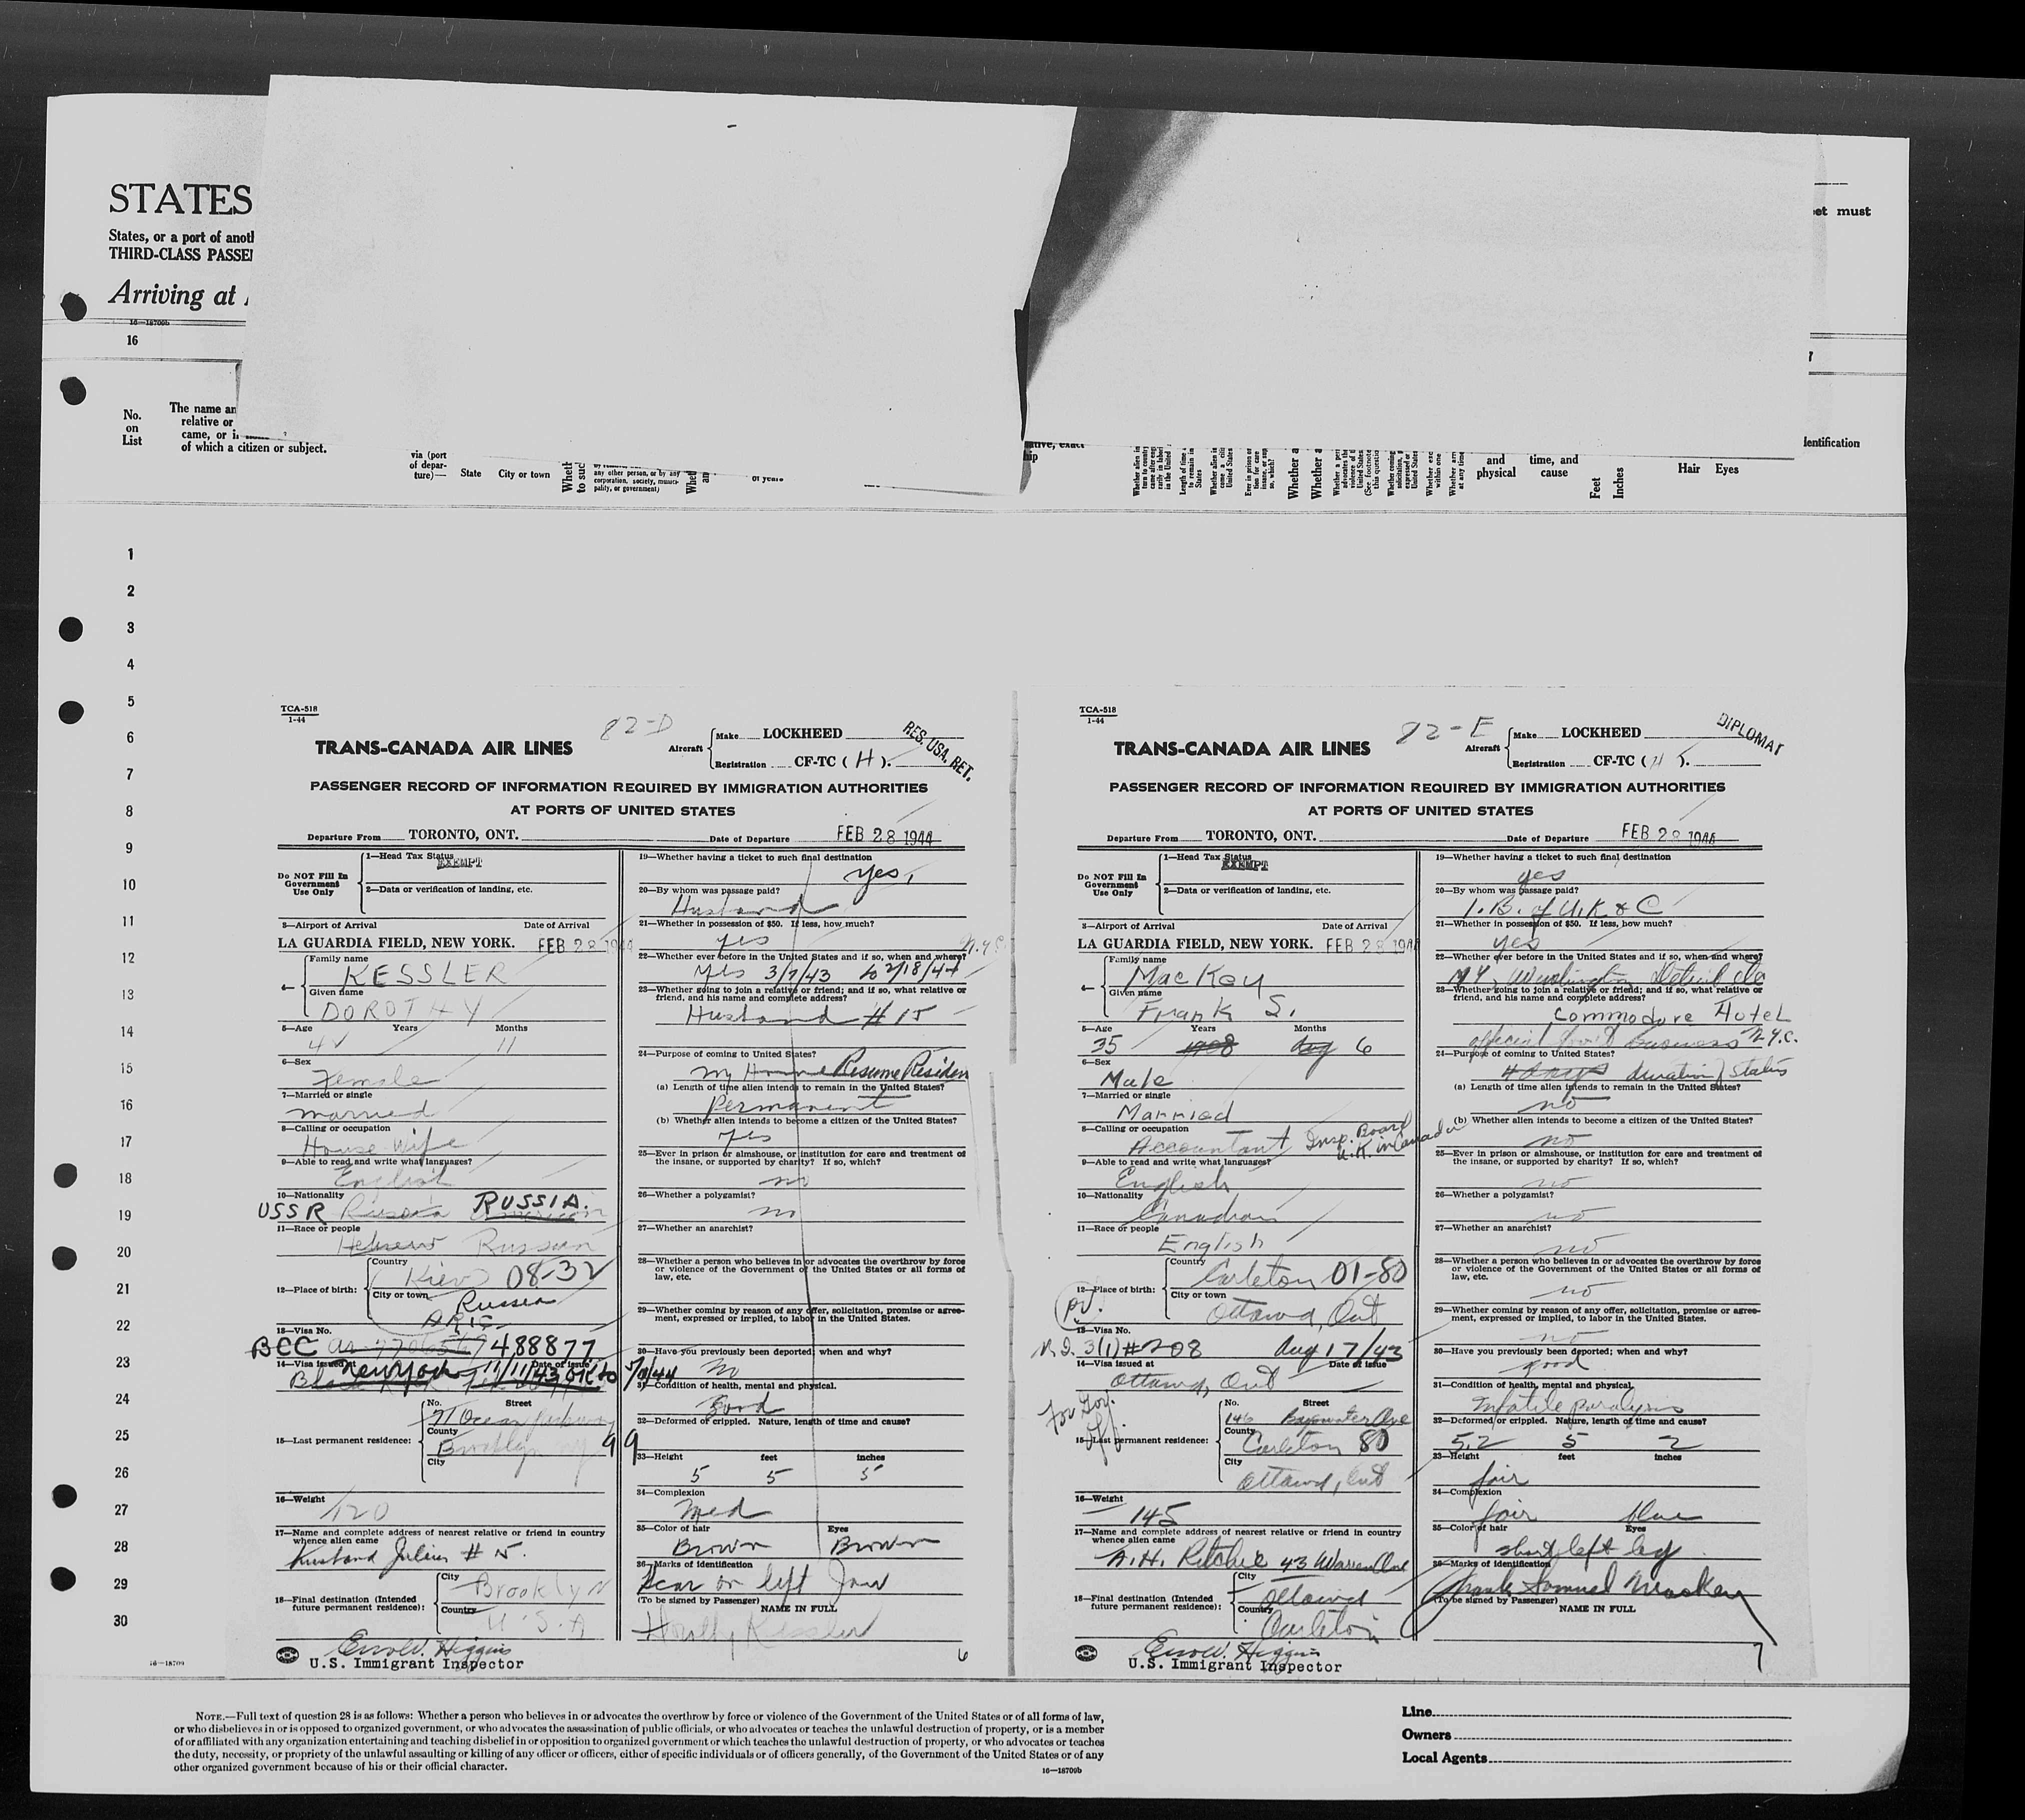 STATES
States, or a port of anoth
THIRD-CLASS PASSE
Arriving at
16—18700b
16
et must
No.
on
List
The name an
relative or
came, or i
of which a citizen or subject.
via (port
of depar-
ture)—
State
City or town
any other person, or by any
corporation, society, munici-
pality, or government)
of years
and
physical
time, and
cause
Feet
Inches
Hair Eyes
dentification
1
2
3
4
5
6
7
8
9
10
11
12
13
14
15
16
17
18
19
20
21
22
23
24
25
26
27
28
29
30
16—18709
TCA-518
1-44
82-D
TRANS-CANADA AIR LINES
Aircraft
Make LOCKHEED
Registration CF-TC ( H ).
RES. USA. RET.
PASSENGER RECORD OF INFORMATION REQUIRED BY IMMIGRATION AUTHORITIES
AT PORTS OF UNITED STATES
Departure From TORONTO, ONT. Date of Departure FEB 28 1944
Do NOT Fill In
Government
Use Only
1—Head Tax Status
EXEMPT
2—Data or verification of landing, etc.
3—Airport of Arrival Date of Arrival
LA GUARDIA FIELD, NEW YORK. FEB 28 1944
4—
Family name
KESSLER
Given name
DOROTHY
5—Age Years Months
11
6—Sex
Female
7—Married or single
married
8—Calling or occupation
House wife
9—Able to read and write what languages?
English
10—Nationality
USSR Russia RUSSIA.
11—Race or people
Hebrew Russian
12—Place of birth:
Country
Kiev 08-32
City or town
Russia
13—Visa No.
BCC 488877
14—Visa issued at Date of issue
New York 11/11/43 OK to
15—Last permanent residence:
No. Street
71 Ocean Parkway
County
Brooklyn NY 99
City
16—Weight
120
17—Name and complete address of nearest relative or friend in country
whence alien came
Husband Julius # 15.
18—Final destination (Intended
future permanent residence):
City
Brooklyn
Country
U.S.A
Errol W. Higgins
U.S. Immigrant Inspector
19—Whether having a ticket to such final destination
yes,
20—By whom was passage paid?
Husband
21—Whether in possession of $50. If less, how much?
yes
N.Y.C.
22—Whether ever before in the United States and if so, when and where?
yes 3/7/43 to 2/18/44
23—Whether going to join a relative or friend; and if so, what relative or
friend, and his name and complete address?
Husband # 15
24—Purpose of coming to United States?
my Home Resume Residen
(a) Length of time alien intends to remain in the United States?
Permanent
(b) Whether alien intends to become a citizen of the United States?
yes
25—Ever in prison or almshouse, or institution for care and treatment of
the insane, or supported by charity? If so, which?
no
26—Whether a polygamist?
no
27—Whether an anarchist?
28—Whether a person who believes in or advocates the overthrow by force
or violence of the Government of the United States or all forms of
law, etc.
29—Whether coming by reason of any offer, solicitation, promise or agree-
ment, expressed or implied, to labor in the United States.
30—Have you previously been deported; when and why?
no
31—Condition of health, mental and physical.
Good
32—Deformed or crippled. Nature, length of time and cause?
33—Height feet inches
5 5 5
34—Complexion
Med
35—Color of hair Eyes
Brown Brown
36—Marks of identification
Scar on left Jaw
(To be signed by Passenger) NAME IN FULL
Dorothy Kessler
6
TCA-518
1-44
82-E
TRANS-CANADA AIR LINES
Aircraft
Make LOCKHEED
Registration CF-TC ( H ).
DIPLOMAT
PASSENGER RECORD OF INFORMATION REQUIRED BY IMMIGRATION AUTHORITIES
AT PORTS OF UNITED STATES
Departure From TORONTO, ONT. Date of Departure FEB 28 1944
Do NOT Fill In
Government
Use Only
1—Head Tax Status
EXEMPT
2—Data or verification of landing, etc.
3—Airport of Arrival Date of Arrival
LA GUARDIA FIELD, NEW YORK. FEB 28 1944
4—
Family name
MacKey
Given name
Frank S.
5—Age Years Months
35 1908 Aug 6
6—Sex
Male
7—Married or single
Married
8—Calling or occupation
Accountant Insp. Board
U.K. in Canada
9—Able to read and write what languages?
English
10—Nationality
Canadian
11—Race or people
English
12—Place of birth:
Country
Carleton 01-80
City or town
Ottawa, Ont
13—Visa No.
3(1) #208 Aug 17/43
14—Visa issued at Date of issue
Ottawa, Ont
For Gov.
Off.
15—Last permanent residence:
No. Street
146 Bayswater Ave
County
Carleton 80
City
Ottawa, Ont
16—Weight
145
17—Name and complete address of nearest relative or friend in country
whence alien came
A.H. Ritchie 43 Warren Ave
18—Final destination (Intended
future permanent residence):
City
Ottawa
Country
Carleton
Errol W. Higgins
U.S. Immigrant Inspector
19—Whether having a ticket to such final destination
yes
20—By whom was passage paid?
I.B. of U.K & C
21—Whether in possession of $50. If less, how much?
yes
22—Whether ever before in the United States and if so, when and where?
NY, Washington, Detroit etc
23—Whether going to join a relative or friend; and if so, what relative or
friend, and his name and complete address?
Commodore Hotel
N.Y.C.
official gov't business
24—Purpose of coming to United States?
4 days duration of Status
(a) Length of time alien intends to remain in the United States?
no
(b) Whether alien intends to become a citizen of the United States?
no
25—Ever in prison or almshouse, or institution for care and treatment of
the insane, or supported by charity? If so, which?
no
26—Whether a polygamist?
no
27—Whether an anarchist?
no
28—Whether a person who believes in or advocates the overthrow by force
or violence of the Government of the United States or all forms of
law, etc.
no
29—Whether coming by reason of any offer, solicitation, promise or agree-
ment, expressed or implied, to labor in the United States.
no
30—Have you previously been deported; when and why?
good
31—Condition of health, mental and physical.
Infatile paralysis
32—Deformed or crippled. Nature, length of time and cause?
5.2 5 2
33—Height feet inches
fair
34—Complexion
fair blue
35—Color of hair Eyes
short left leg
36—Marks of identification
Frank Samuel Mackey
(To be signed by Passenger) NAME IN FULL
7
NOTE.—Full text of question 28 is as follows: Whether a person who believes in or advocates the overthrow by force or violence of the Government of the United States or of all forms of law,
or who disbelieves in or is opposed to organized government, or who advocates the assassination of public officials, or who advocates or teaches the unlawful destruction of property, or is a member
of or affiliated with any organization entertaining and teaching disbelief in or opposition to organized government or which teaches the unlawful destruction of property, or who advocates or teaches
the duty, necessity, or propriety of the unlawful assaulting or killing of any officer or officers, either of specific individuals or of officers generally, of the Government of the United States or of any
other organized government because of his or their official character.
16—18700b
Line
Owners
Local Agents